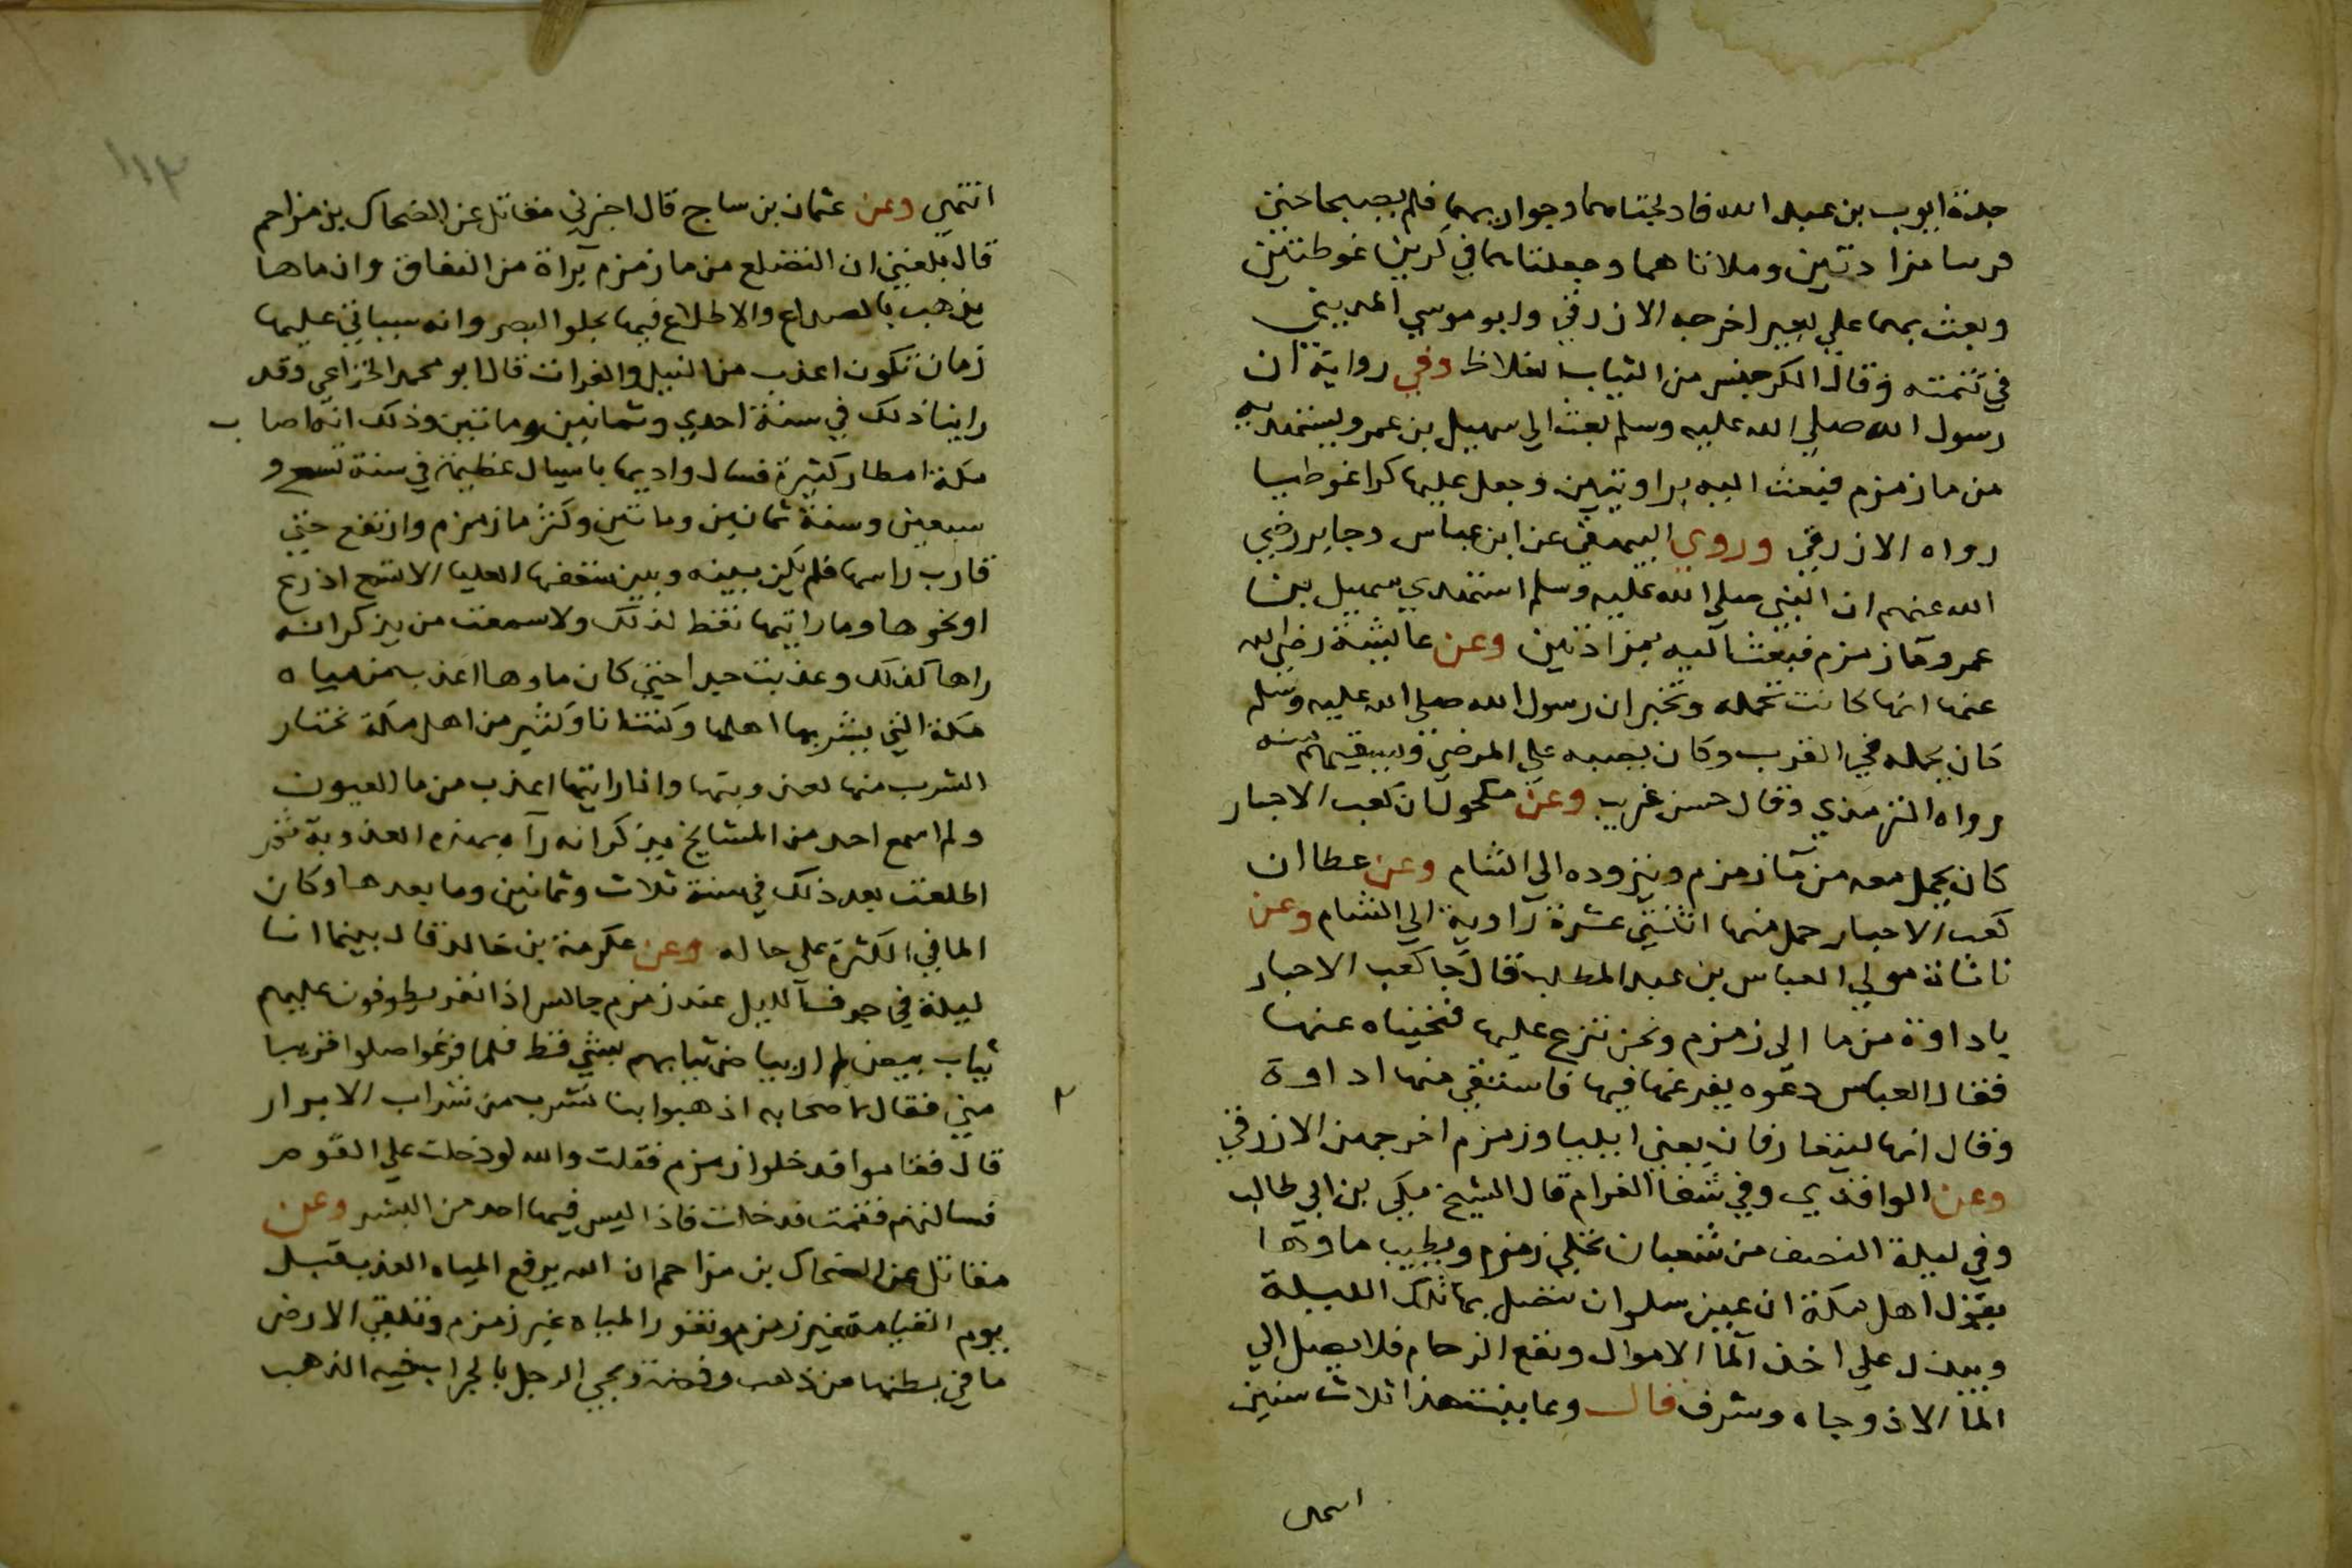 جدة ايوب بن عبد الله فادلجتاهما وجواريهما فلم يصبحا حتي
فرسا مزادتين وملاتاهما وجعلتاهما في كرين غوطتين
وبعث بهما علي بعير اخرجه الازرقي وابو موسي المديني
في تتمته وقال الكر جنس من الثياب الغلاظ وفي رواية ان
رسول الله صلي الله عليه وسلم بعث الي سهيل بن عمرو يستهديه
من ما زمزم فبعث اليه براويتين وجعل عليها كرا غوطيا
رواه الازرقي وروي البيهقي عن ابن عباس وجابر رضي
الله عنهم ان النبي صلي الله عليه وسلم استهدي سهيل بن
عمرو ما زمزم فبعث اليه بمزادتين وعن عايشة رضي الله
عنها انها كانت تحمله وتخبر ان رسول الله صلي الله عليه وسلم
كان يحمله في القرب وكان يصبه علي المرضي ويسقيهم منه
رواه الترمذي وقال حسن غريب وعن مكحول ان كعب الاحبار
كان يحمل معه من ما زمزم ويتزوده الي الشام وعن عطا ان
كعب الاحبار حمل منها اثنتي عشرة راوية الي الشام وعن
ناشانة مولي العباس بن عبد المطلب قال جا كعب الاحبار
باداوة من ما الي زمزم ونحن ننزع عليها فنحيناه عنها
فقال العباس دعوه يفرغها فيها فاستقي منها اداوة
وقال انها ليتعارفان يعني ايليا وزمزم اخرجهن الازرقي
وعن الواقدي وفي شفا الغرام قال الشيخ مكي بن ابي طالب
وفي ليلة النصف من شعبان تحلي زمزم ويطيب ماوها
يقول اهل مكة ان عين سلوان تتصل بها تلك الليلة
ويبذل علي اخذ الما الاموال ويقع الزحام فلا يصل الي
الما الا ذو جاه وشرف قال وعاينت هذا ثلاث سنين
انتهي
انتهي وعن عثمان بن ساج قال اخبرني مقاتل عن الضحاك بن مزاحم
قال بلغني ان التضلع من ما زمزم براة من النفاق وان ماها
يذهب بالصداع والاطلاع فيها يجلو البصر وانه سياتي عليها
زمان تكون اعذب من النيل والفرات قال ابو محمد الخزاعي وقد
راينا ذلك في سنة احدي وثمانين وماتين وذلك انه اصاب
مكة امطار كثيرة فسال واديها باسيال عظيمة في سنة تسع و
سبعين وسنة ثمانين وماتين وكثر ما زمزم وارتفع حتي
قارب راسها فلم يكن بينه وبين شفتها العليا الا تسع اذرع
او نحوها وما رايتها قط كذلك ولا سمعت من يذكر انه
راها كذلك وعذبت جدا حتي كان ماوها اعذب من مياه
مكة التي يشربها اهلها وكنت انا وكثير من اهل مكة نختار
الشرب منها لعذوبتها وانا رايتها اعذب من ما العيون
ولم اسمع احد من المشايخ يذكر انه رآه بهذه العذوبة ثم
اطلعت بعد ذلك في سنة ثلاث وثمانين وما بعدها وكان
الما في الكثرة علي حاله وعن عكرمة بن خالد قال بينما انا
ليلة في جوف الليل عند زمزم جالس اذا نفر يطوفون عليهم
ثياب بيض لم ار بياض ثيابهم بشي قط فلما فرغوا صلوا قريبا
مني فقال لاصحابه اذهبوا بنا نشرب من شراب الابرار
قال فقاموا فدخلوا زمزم فقلت والله لو دخلت علي القوم
فسالتهم فقمت فدخلت فاذا ليس فيها احد من البشر وعن
مقاتل عن الضحاك بن مزاحم ان الله يرفع المياه العذب قبل
يوم القيامة غير زمزم وتغور المياه غير زمزم وتلقي الارض
ما في بطنها من ذهب وفضة ويجي الرجل بالجراب فيه الذهب